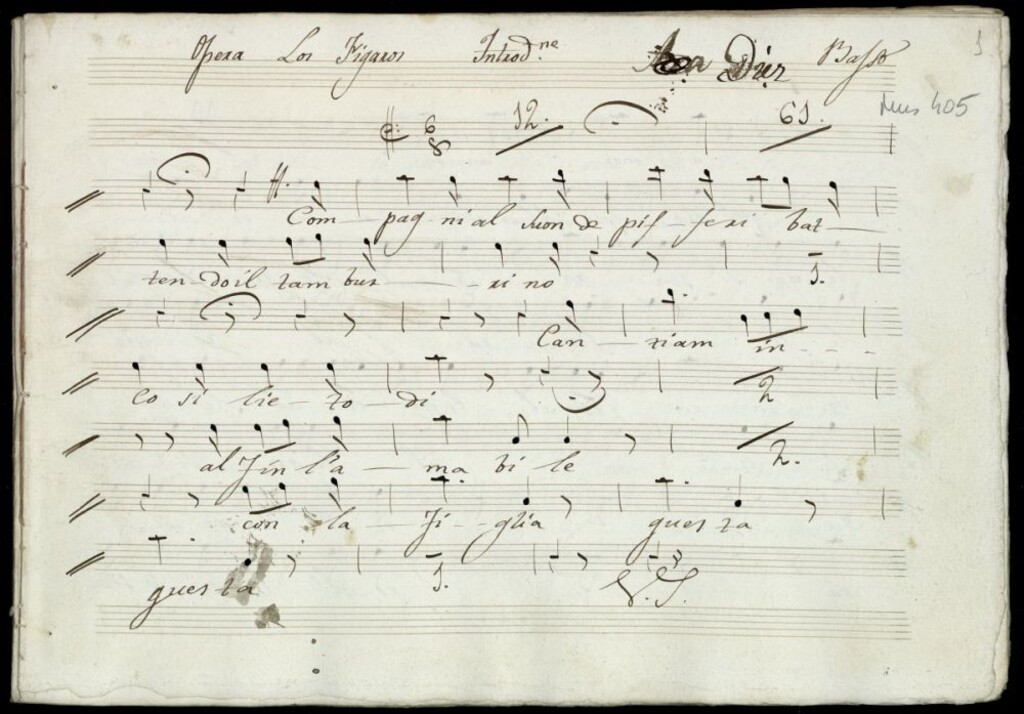 Opera Los Figaros Introd.ne Diez Basso 1
Mus 405
6 8 12. 61.
Com — pag ni al suon de pif — feri bat —
ten — do il tam bur — — ri no 1.
Can — tiam in - - -
Co si lie — to — di 2
al fin l'a — ma bi le 2.
con la — fi — glia guer ra
guer ra 1. V. S.